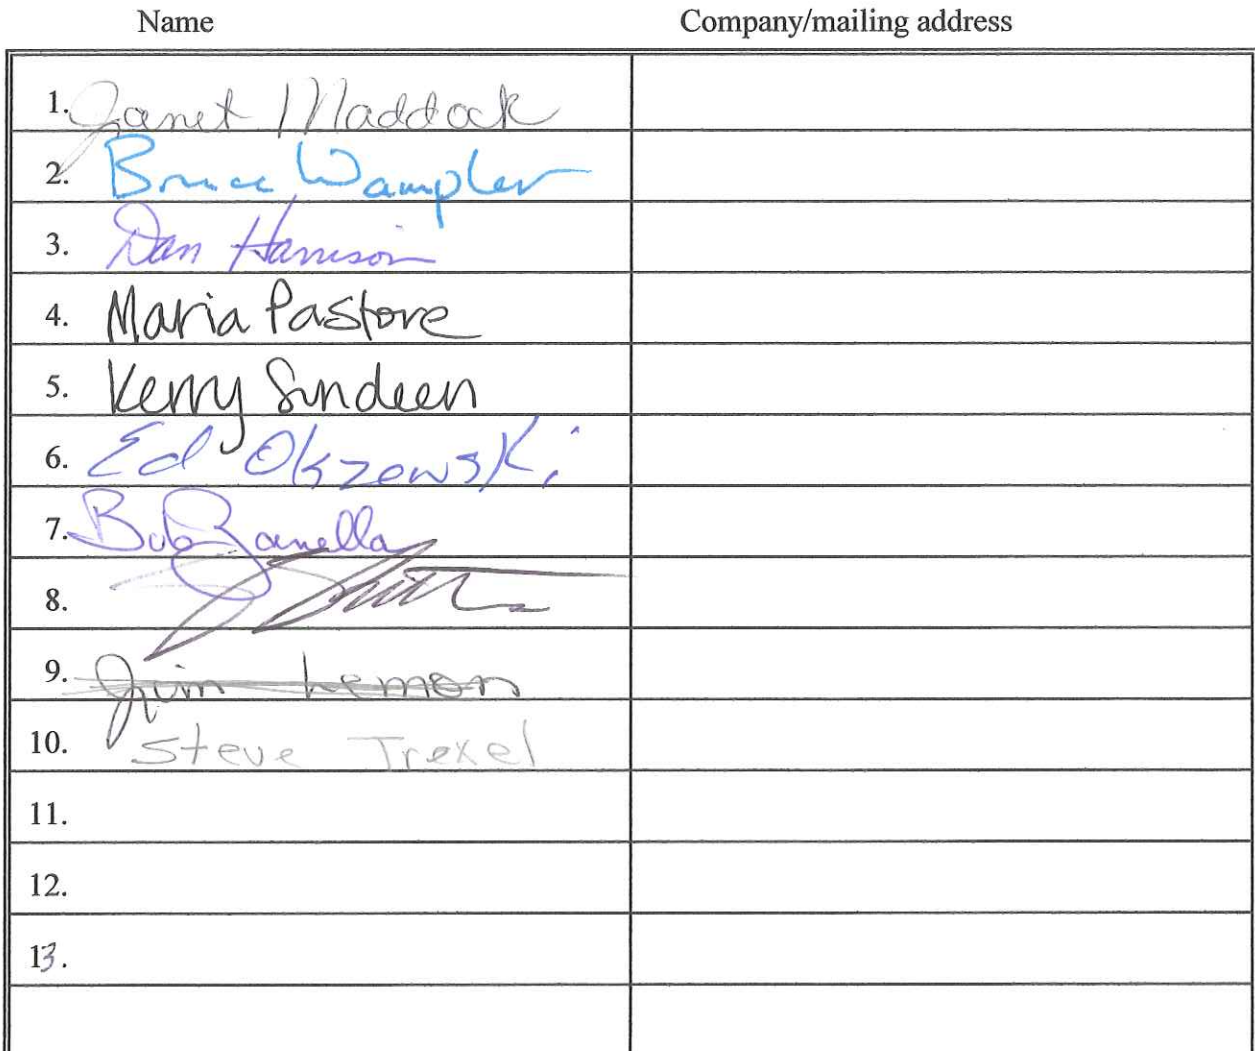 Name Company/mailing address
1. Janet Maddock
2. Bruce Wampler
3. Dan Harrison
4. Maria Pastore
5. Kerry Sundeen
6. Ed Olszewski
7. Bob Zanella
8.
9. Jim Lemon
10. Steve Trexel
11.
12.
13.